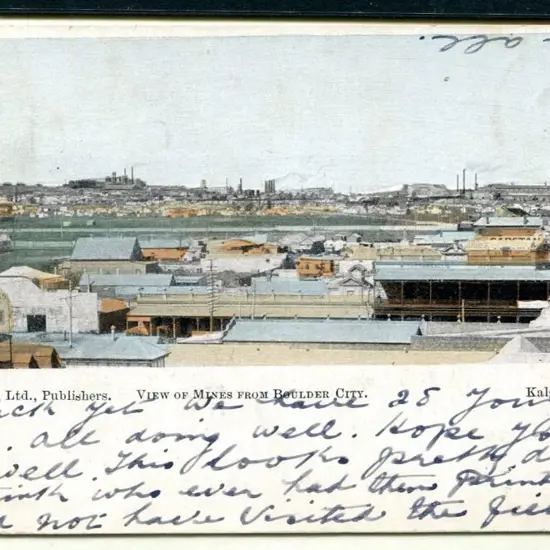 Ltd., Publishers. VIEW OF MINES FROM BOULDER CITY. Kal
yet We have 28 You
all doing well. Hope yo
well. This looks pretty d
who ever had them print
not have visited the fie